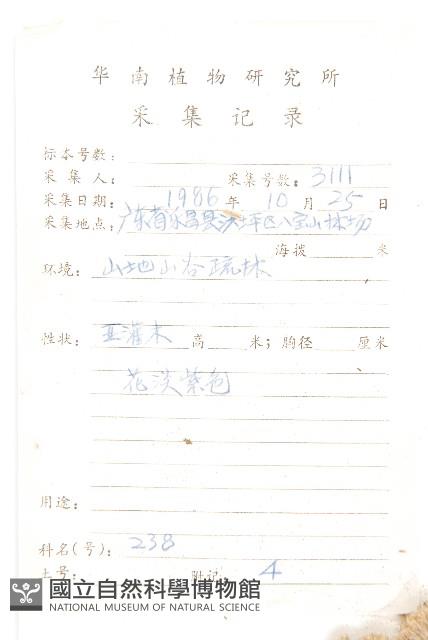 华南植物研究所
采集记录
标本号数:
采集人: 采集号数: 3111
采集日期: 1986 年 10 月 25 日
采集地点: 广东省乐昌县 坪区八宝山林场
海拔 米
环境: 山地山谷疏林
性状: 亚灌木 高 米; 胸径 厘米
花淡紫色
用途:
科名(号): 238
土号: 附记 4
國立自然科學博物館
NATIONAL MUSEUM OF NATURAL SCIENCE